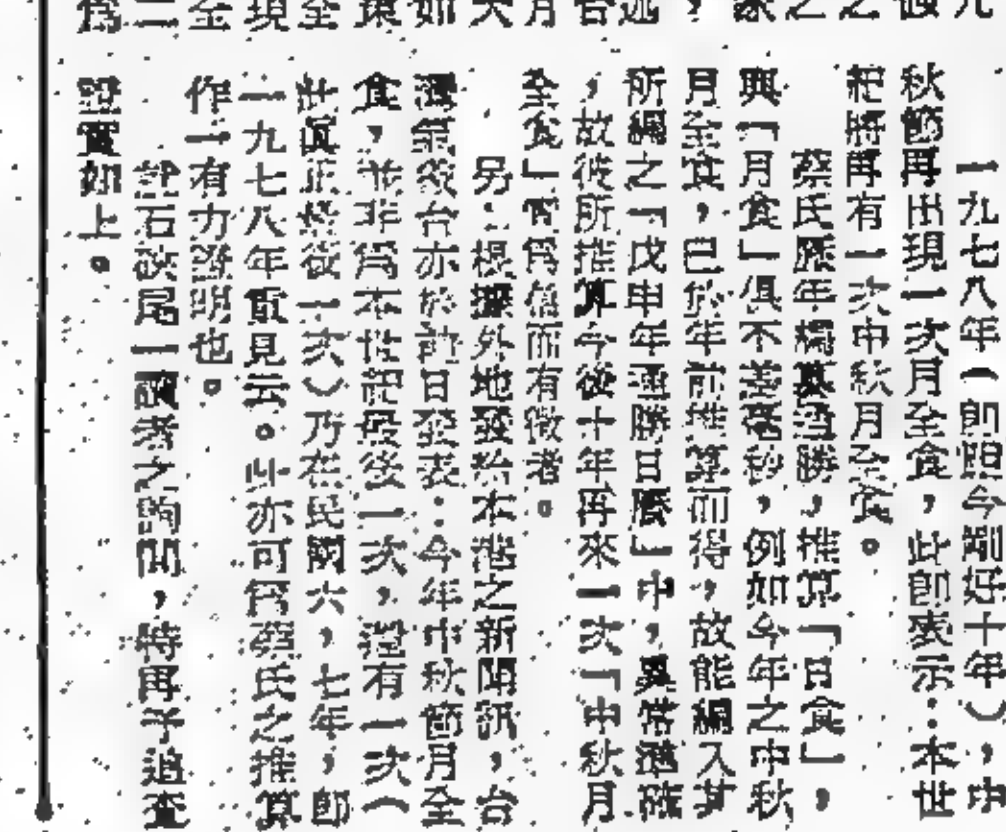 一九七八年（即距今剛好十年），中
秋節再出現一次月全食，此即表示：本世
紀將再有一次中秋月全食。
蔡氏歷年編纂通勝，推算「日食」，
與「月食」俱不差毫秒，例如今年之中秋
月全食，已於年前推算而得，故能編入其
所編之「戊申年通勝日曆」中，異常準確
，故彼所推算今後十年再來一次「中秋月
全食」實為信而有徵者。
另：根據外地發給本港之新聞訊，台
灣氣象台亦於許日發表：今年中秋節月全
食，並非為本世紀最後一次，還有一次（
此真正最後一次）乃在民國六，七年，即
一九七八年實見云。此亦可為蔡氏之推算
作一有力證明也。
石硤尾一讀者之詢問，特再予追查
證實如上。